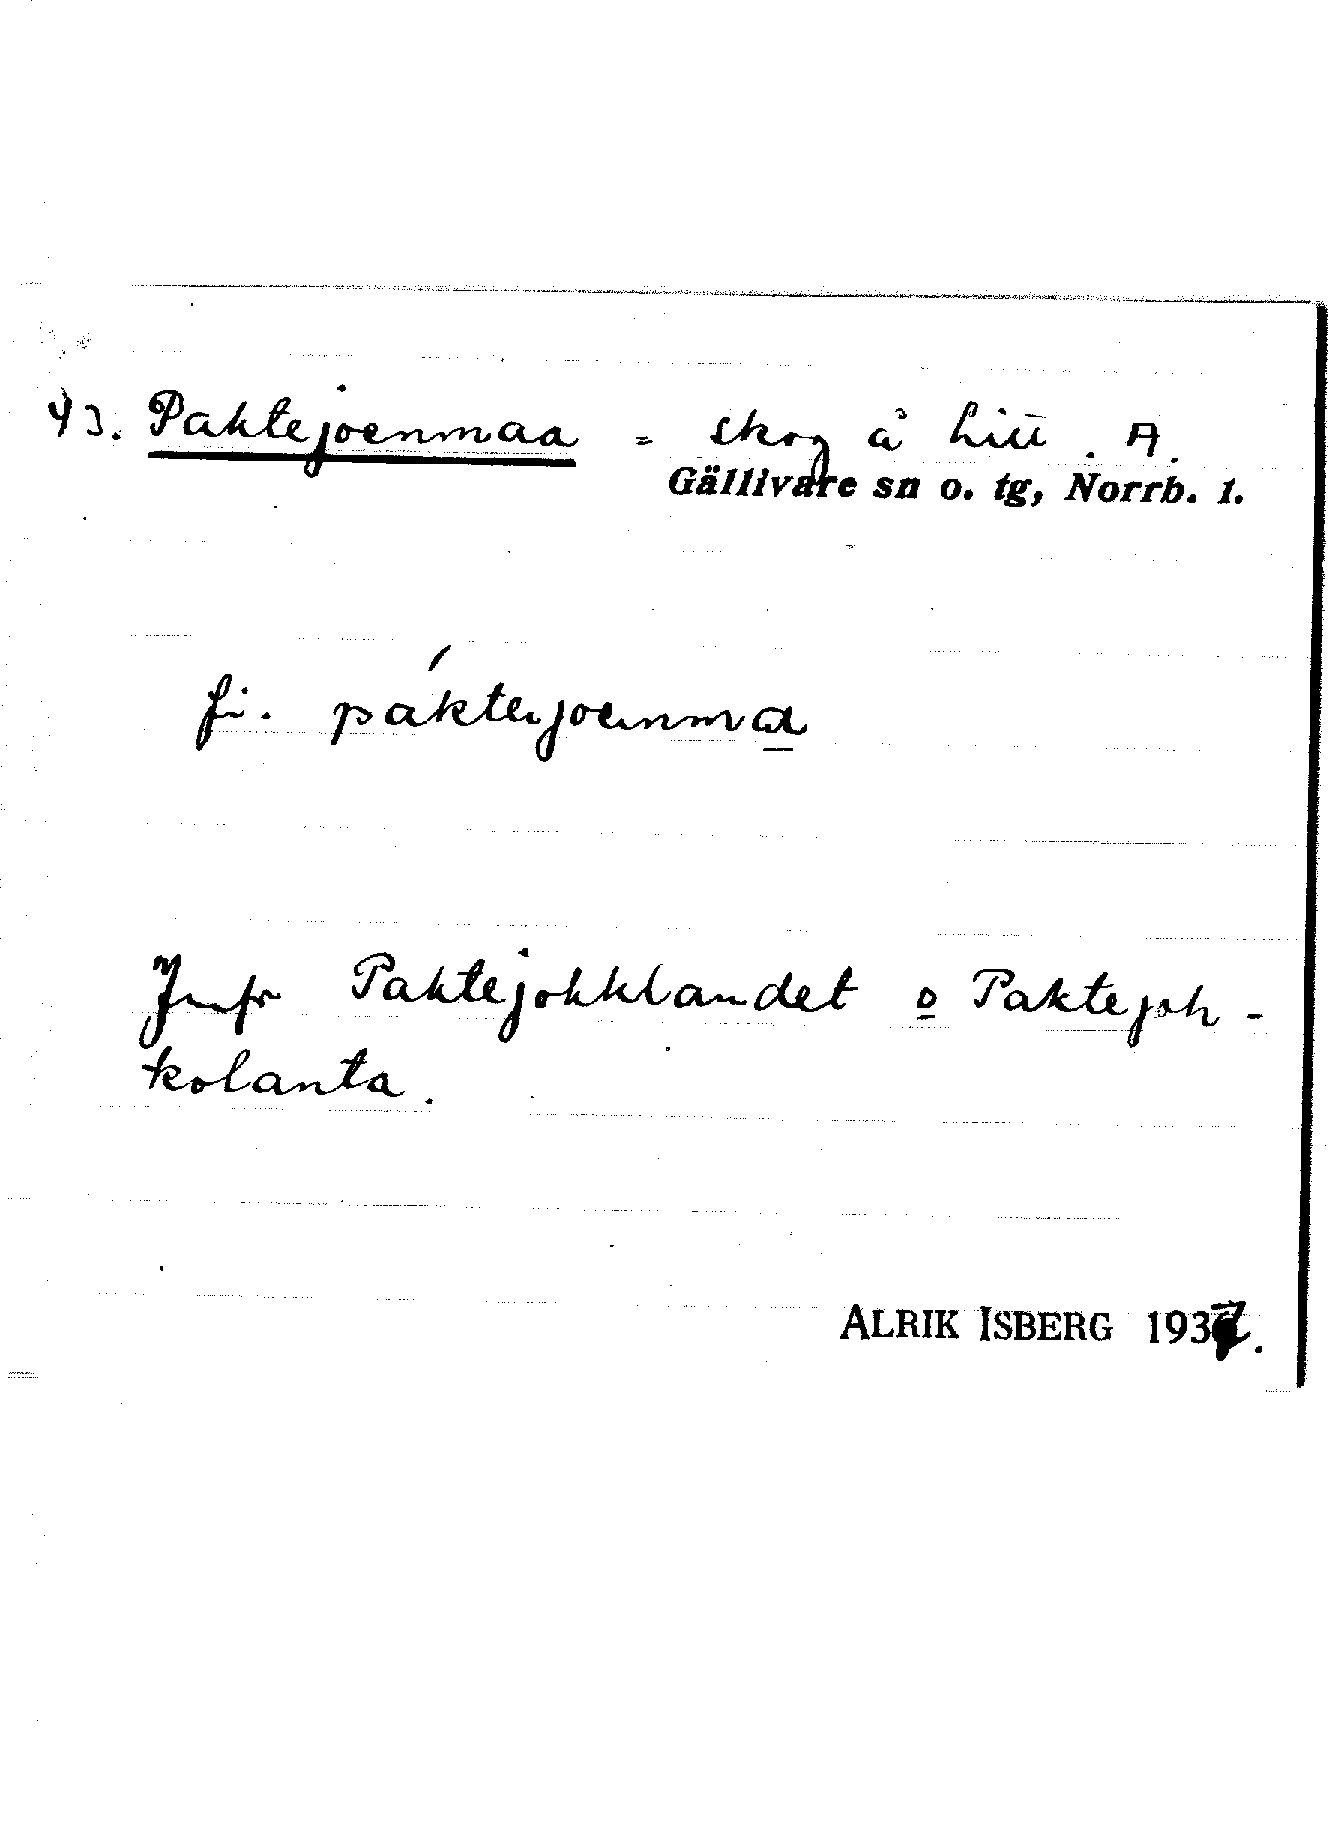 43. Paktejoenmaa = skog å litt. A.
Gällivare sn o. tg, Norrb. l.
fi. páktejoenma
Jmfr Paktejokklandet o Paktejok-
kolanta.
ALRIK ISBERG 1937.